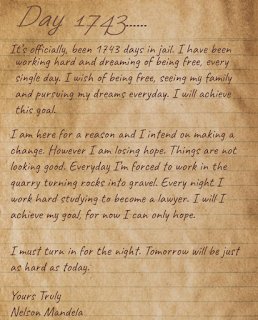 Day 1743......
It's officially, been 1743 days in jail. I have been
working hard and dreaming of being free, every
single day. I wish of being free, seeing my family
and pursuing my dreams everyday. I will achieve
this goal.
I am here for a reason and I intend on making a
change. However I am losing hope. Things are not
looking good. Everyday I'm forced to work in the
quarry turning rocks into gravel. Every night I
work hard studying to become a lawyer. I will I
achieve my goal, for now I can only hope.
I must turn in for the night. Tomorrow will be just
as hard as today.
Yours Truly
Nelson Mandela